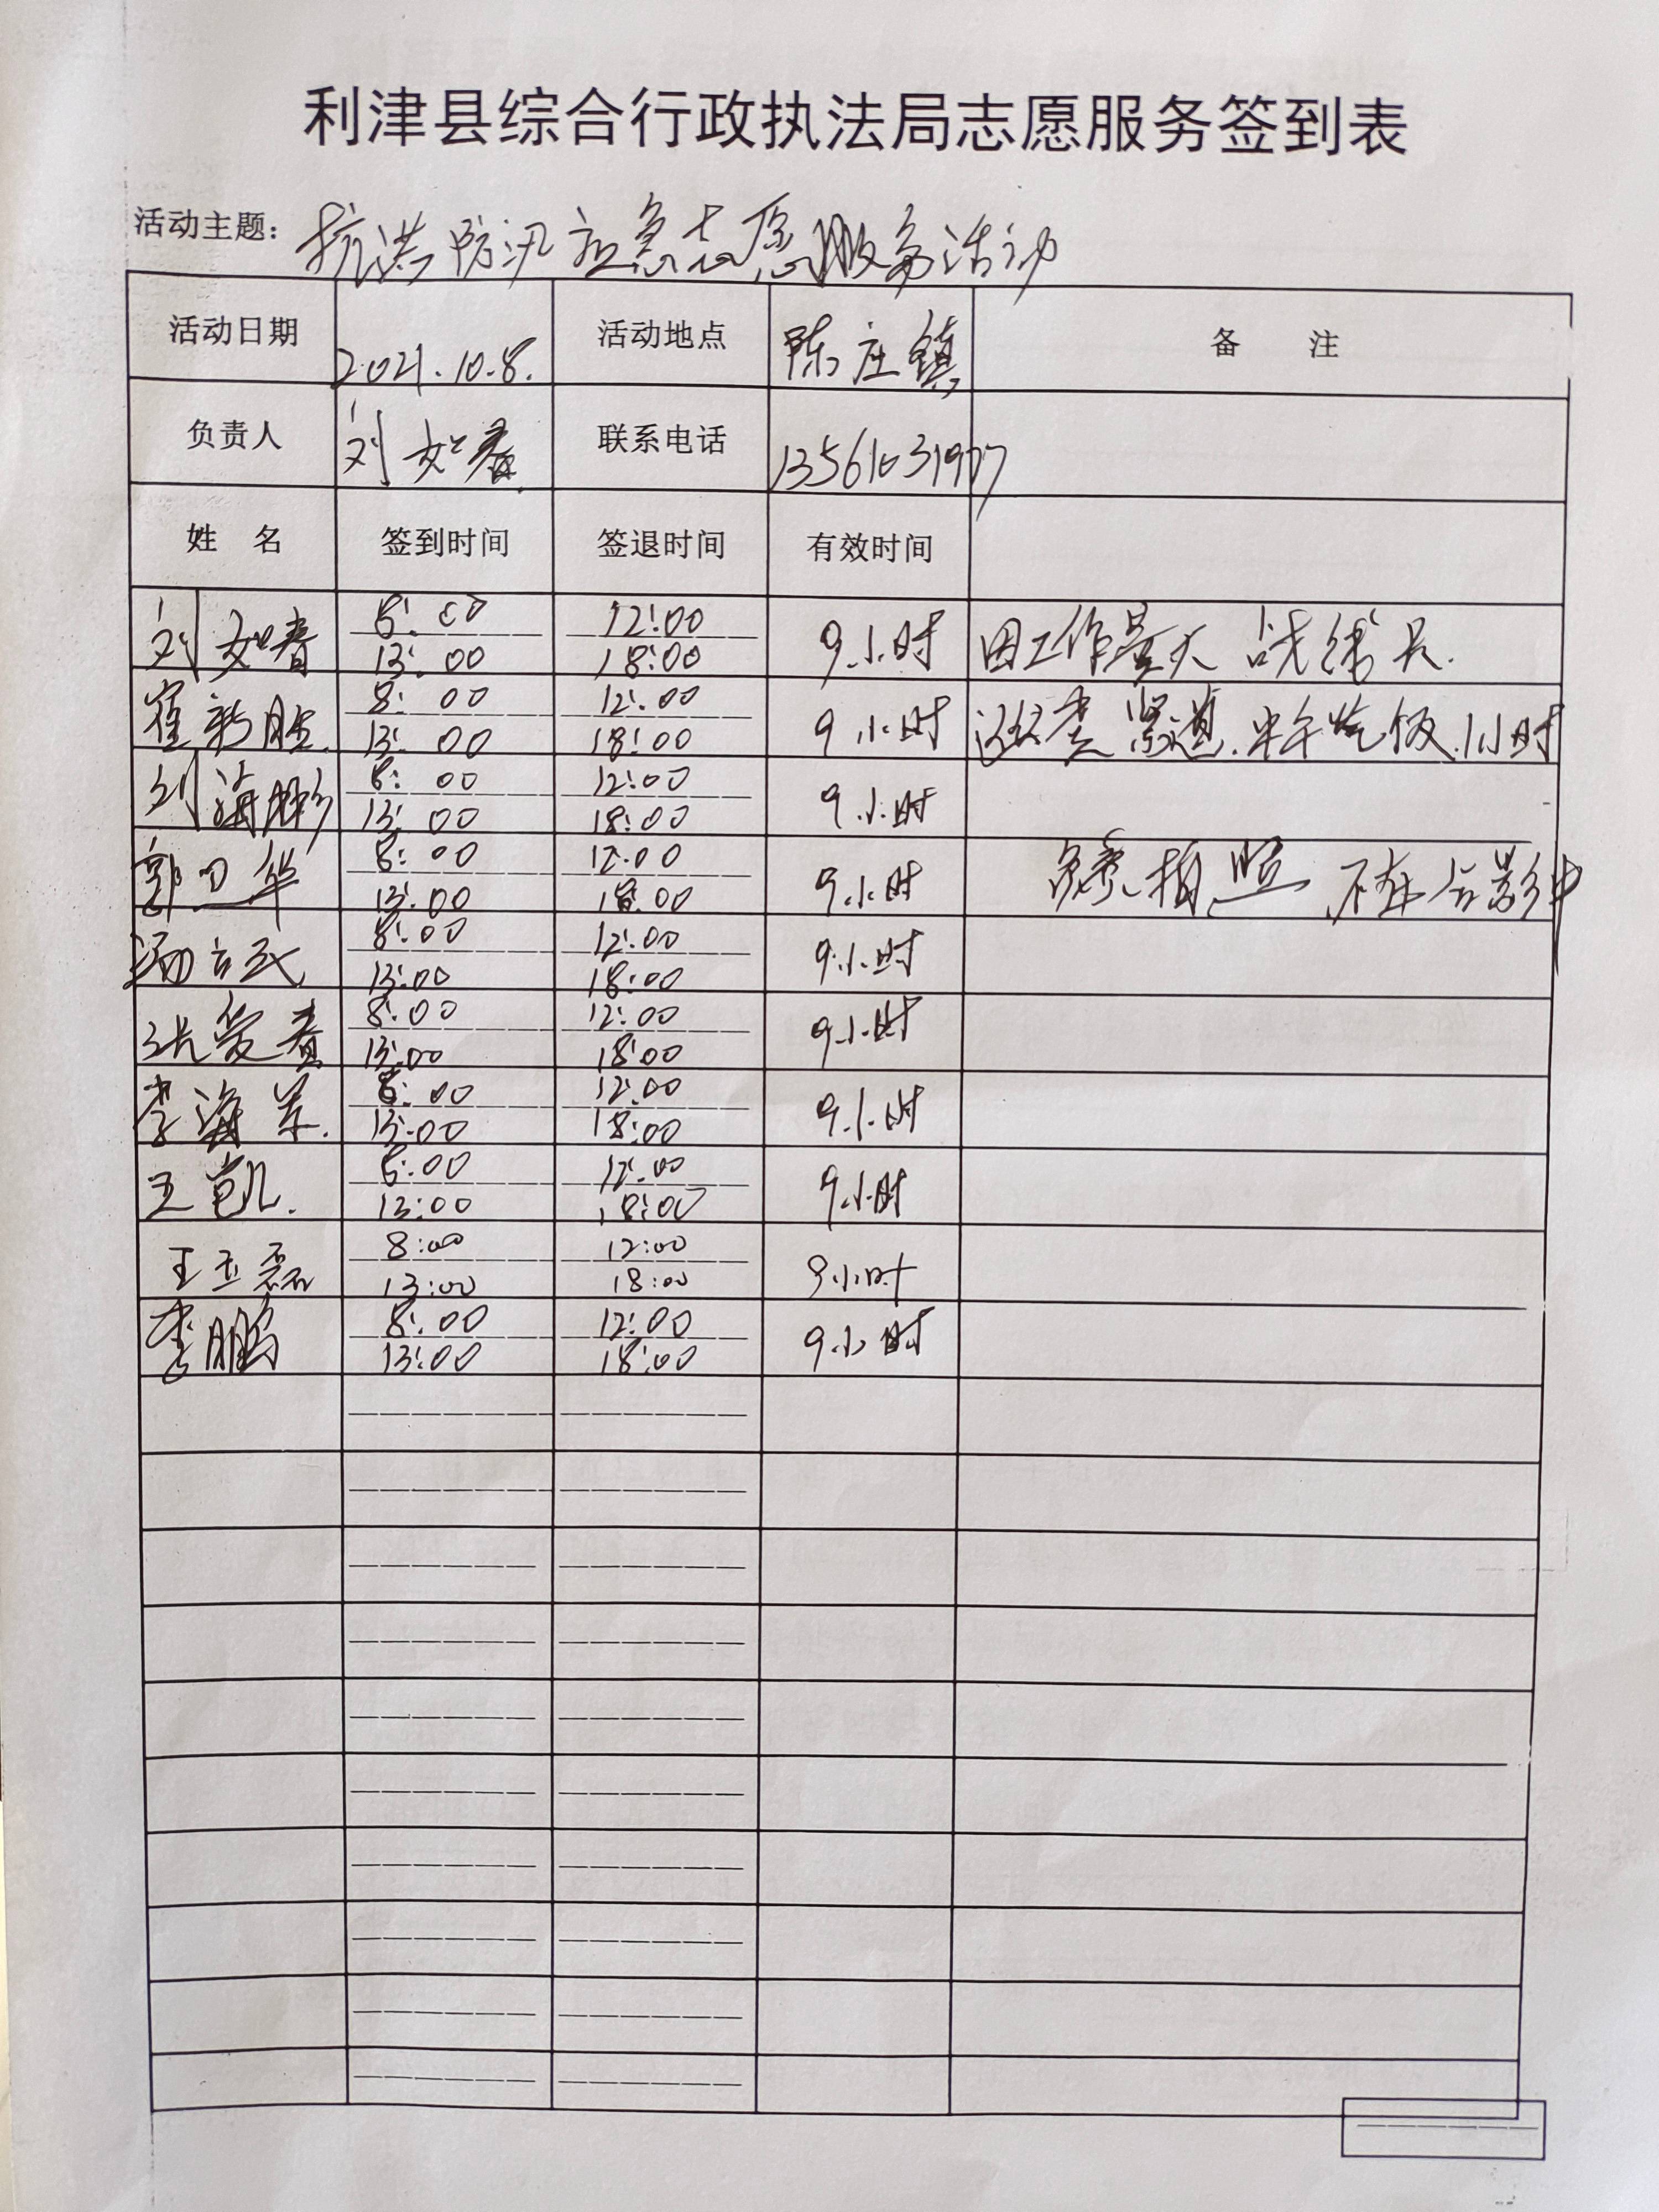 利津县综合行政执法局志愿服务签到表
活动主题：抗洪防汛应急志愿服务活动
活动日期 2021.10.8. 活动地点 陈庄镇 备 注
负责人 刘如春 联系电话 13561031977
姓 名 签到时间 签退时间 有效时间
刘如春 8:00 12:00 9小时 因工作量大 战线长.
13:00 18:00
崔新胜. 8:00 12:00 9小时 检查紧迫.中午吃饭.1小时
13:00 18:00
刘海彬 8:00 12:00 9小时
13:00 18:00
郭卫华 8:00 12:00 9小时 照相 不在合影中
13:00 18:00
8:00 12:00 9小时
13:00 18:00
张爱春 8:00 12:00 9小时
13:00 18:00
李海军. 8:00 12:00 9小时
13:00 18:00
王凯. 8:00 12:00 9小时
13:00 18:00
王玉磊 8:00 12:00 9小时
13:00 18:00
李鹏 8:00 12:00 9小时
13:00 18:00